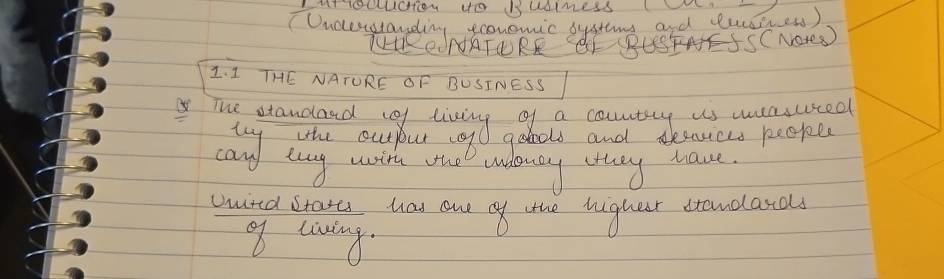 Introduction to Business
(Understanding economic systems and business)
THE NATURE OF BUSINESS (Notes)
1.1 THE NATURE OF BUSINESS
The standard of living of a country is measured
by the output of goods and services people
can buy with the money they have.
United States has one of the highest standards
of living.